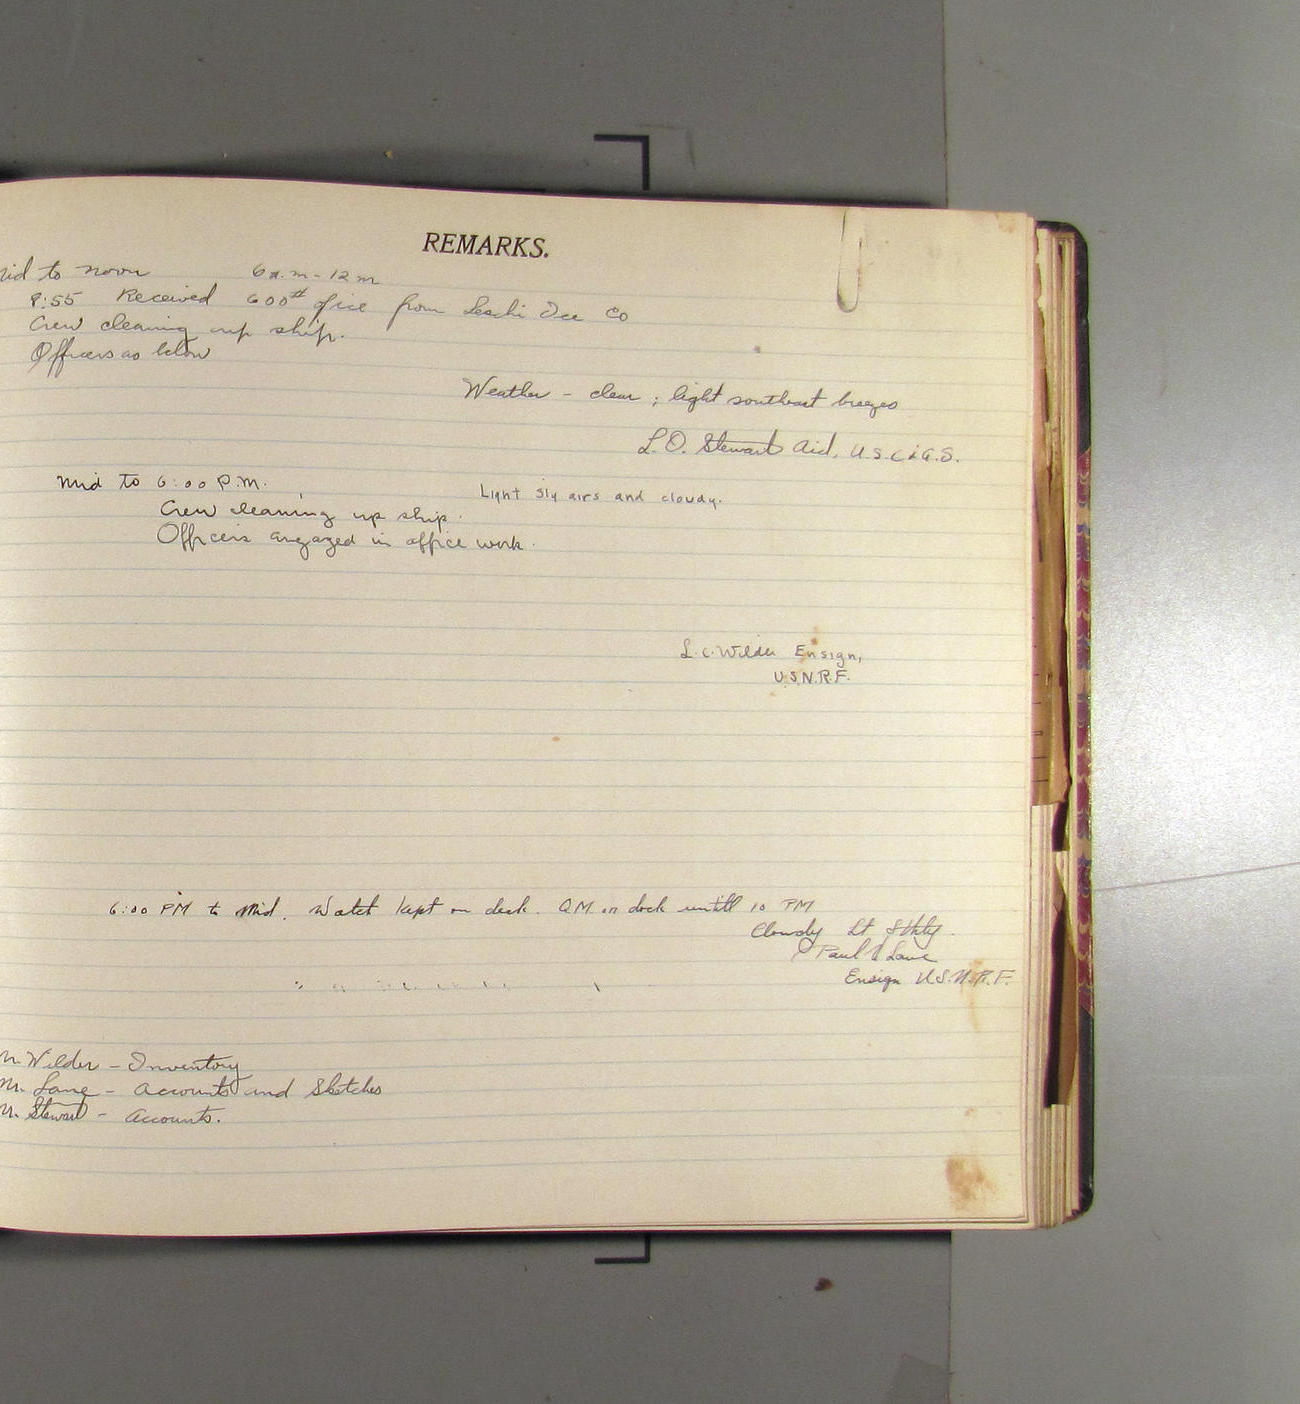 REMARKS.
Mid to noon 6 a.m - 12 m
8:55 Received 600# of ice from Leschi Ice Co
Crew cleaning up ship.
Officers as below
Weather - clear ; light southeast breezes
L.O. Stewart Aid, U.S.C.&G.S.
Mid to 6:00 P.M.
Light sly airs and cloudy.
Crew cleaning up ship.
Officers engaged in office work.
L.C. Wilder Ensign,
U.S.N.R.F.
6:00 PM to Mid. Watch kept on deck. QM on dock untill 10 PM
Cloudy Lt Sthly.
Paul Lane
Ensign U.S.N.R.F.
Mr. Wilder - Inventory
Mr. Lane - Accounts and Sketches
Mr. Stewart - Accounts.